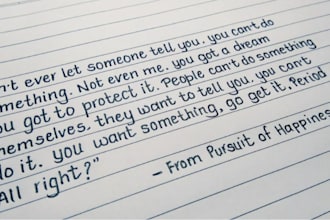 n't ever let someone tell you. you can't do
mething. Not even me. you got a dream
ou got to protect it. People can't do something
hemselves. they want to tell you. you can't
do it. you want something, go get it. Period
All right?"
- From Pursuit of Happines